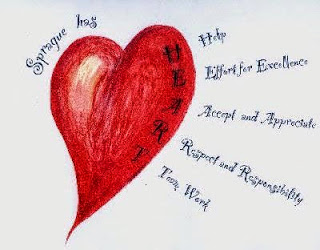 Sprague has
HEART
Help
Effort for Excellence
Accept and Appreciate
Respect and Responsibility
Team Work